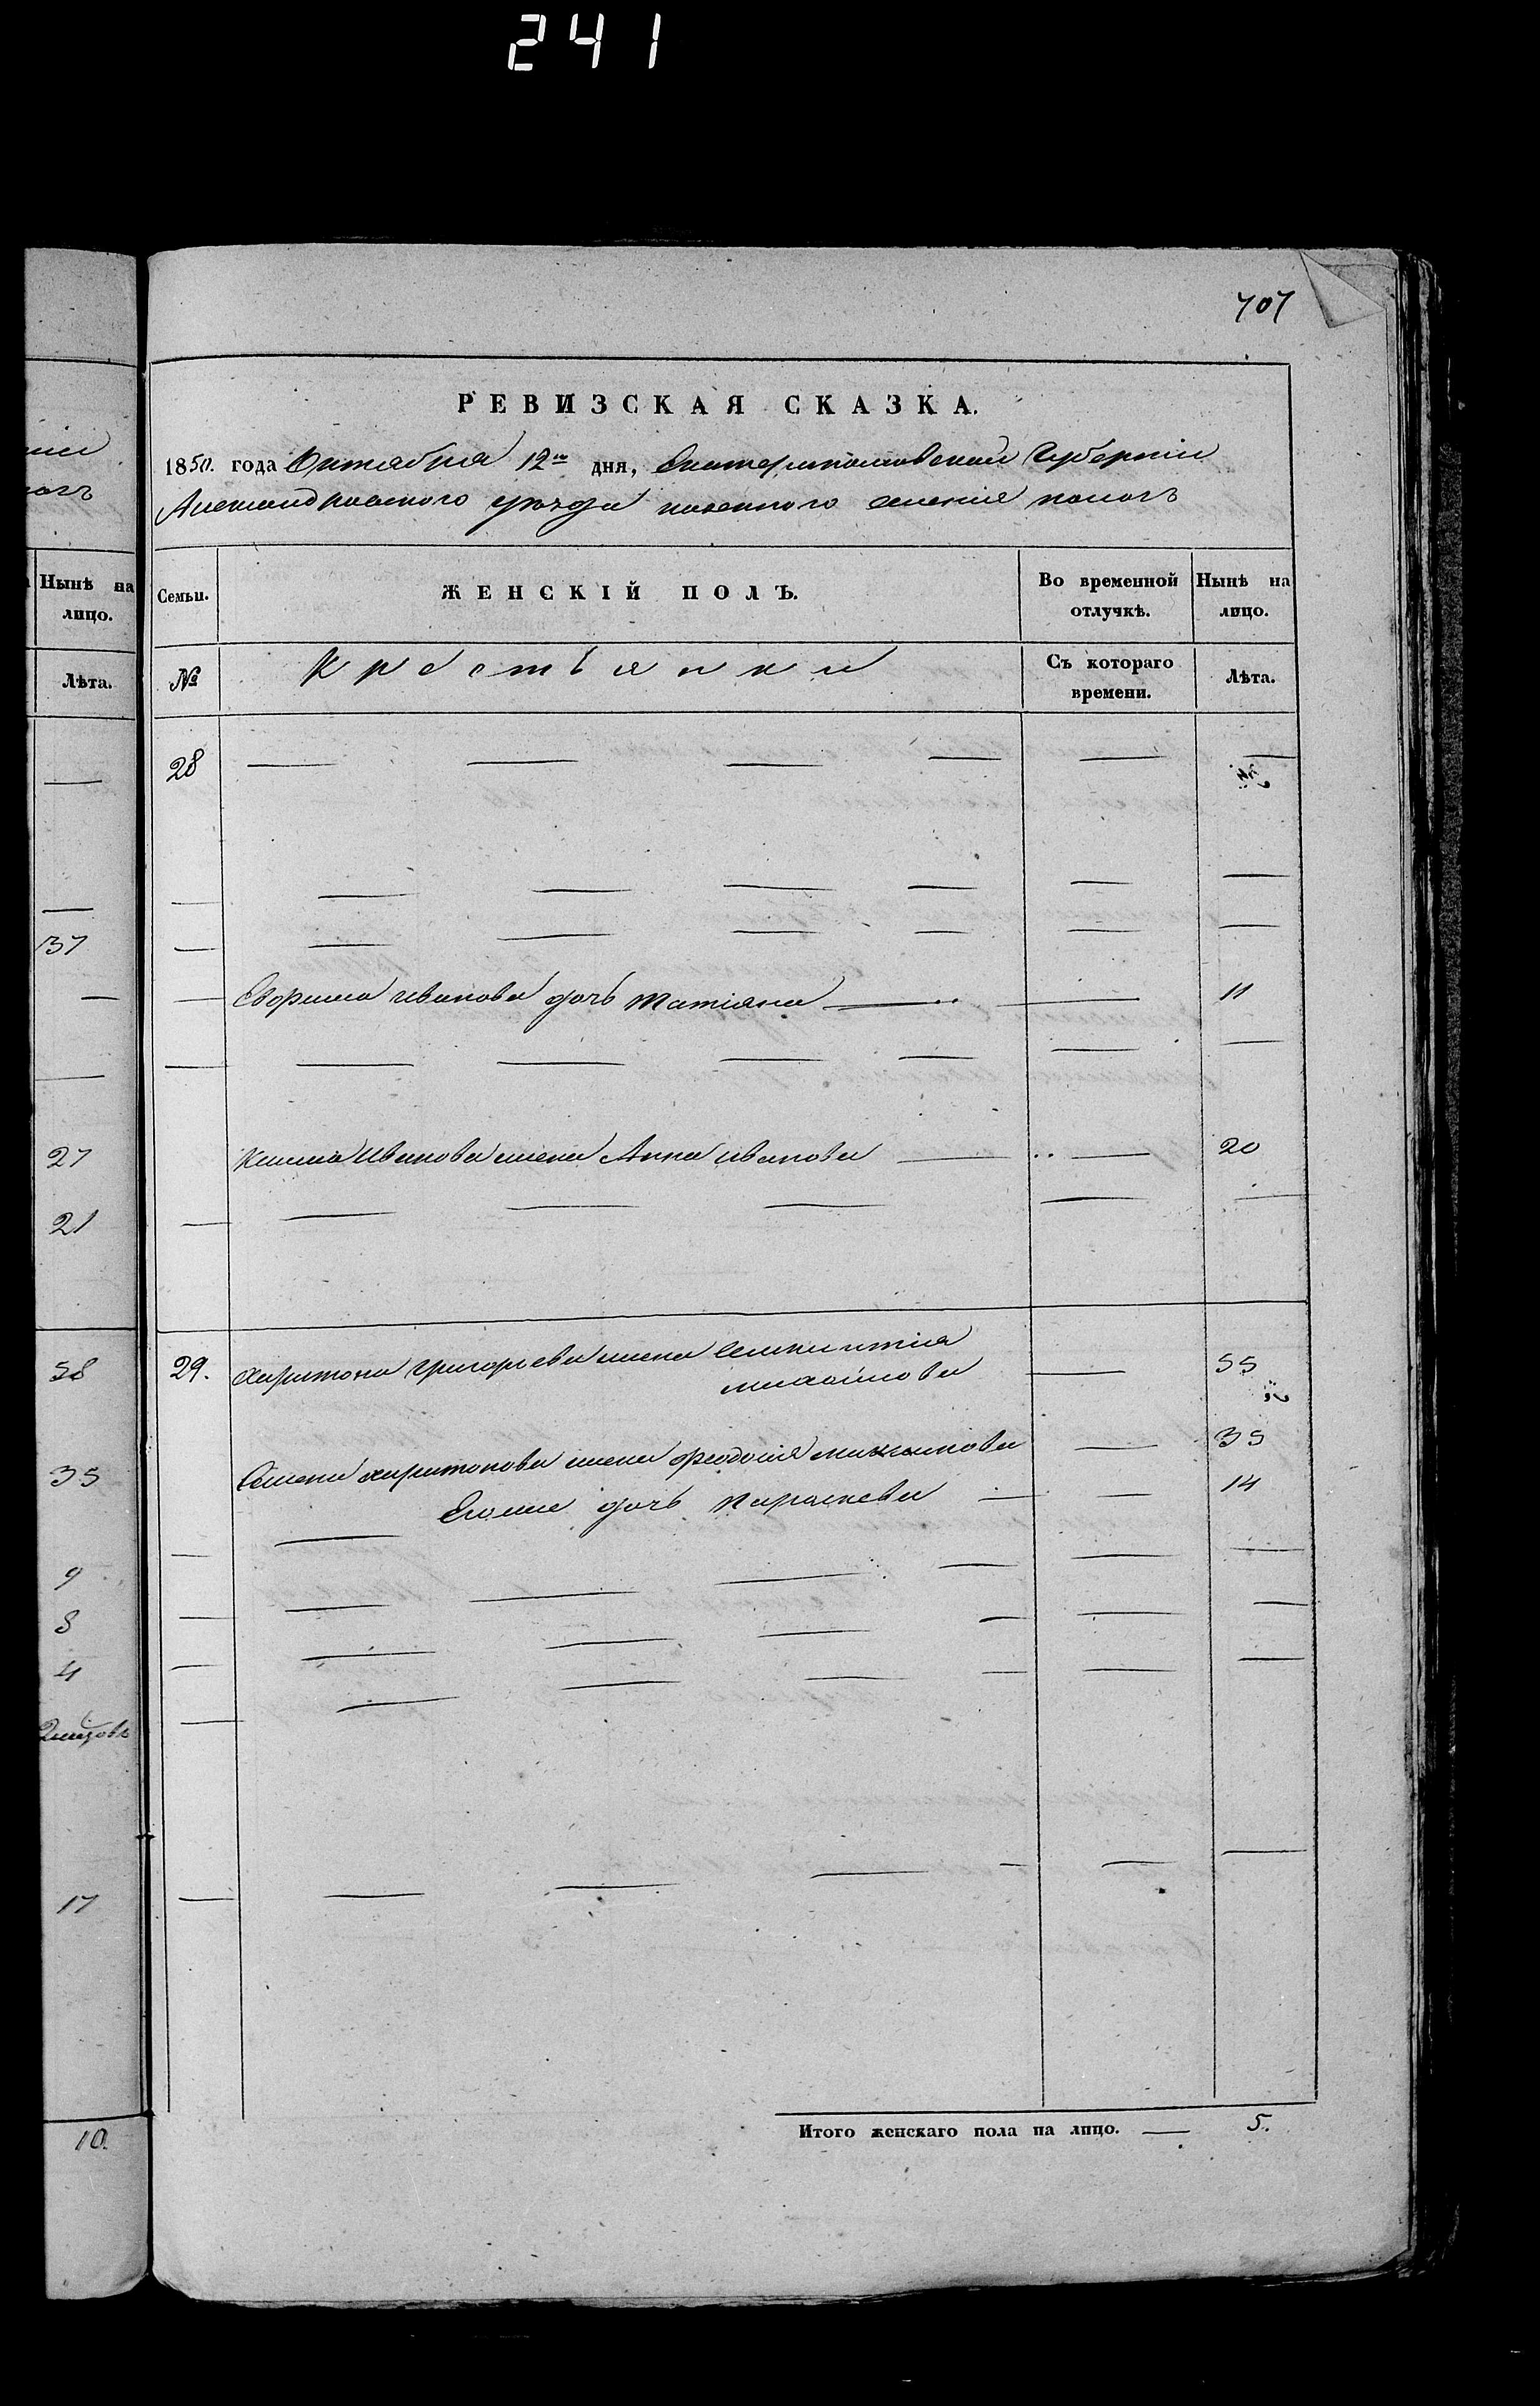 241
707
РЕВИЗСКАЯ СКАЗКА.
1850. года Октября 12го дня, Екатеринославской Губерніи
Александровского уезда казенного селенія
Нынѣ на лицо.
Семьи.
ЖЕНСКІЙ ПОЛЪ.
Во временной отлучкѣ.
Нынѣ на лицо.
Лѣта.
№
Крестьянки
Съ котораго времени.
Лѣта.
28
37
Иванова дочь Татіяна 11
27
Клима Иванова жена Анна Иванова 20
21
58
29. Харитона Григорьева жена
Михайлова 55
35
Семена Харитонова жена Феодосія 35
Егоже дочь Параскева 14
9
8
4
17
10.
Итого женскаго пола на лицо. — 5.